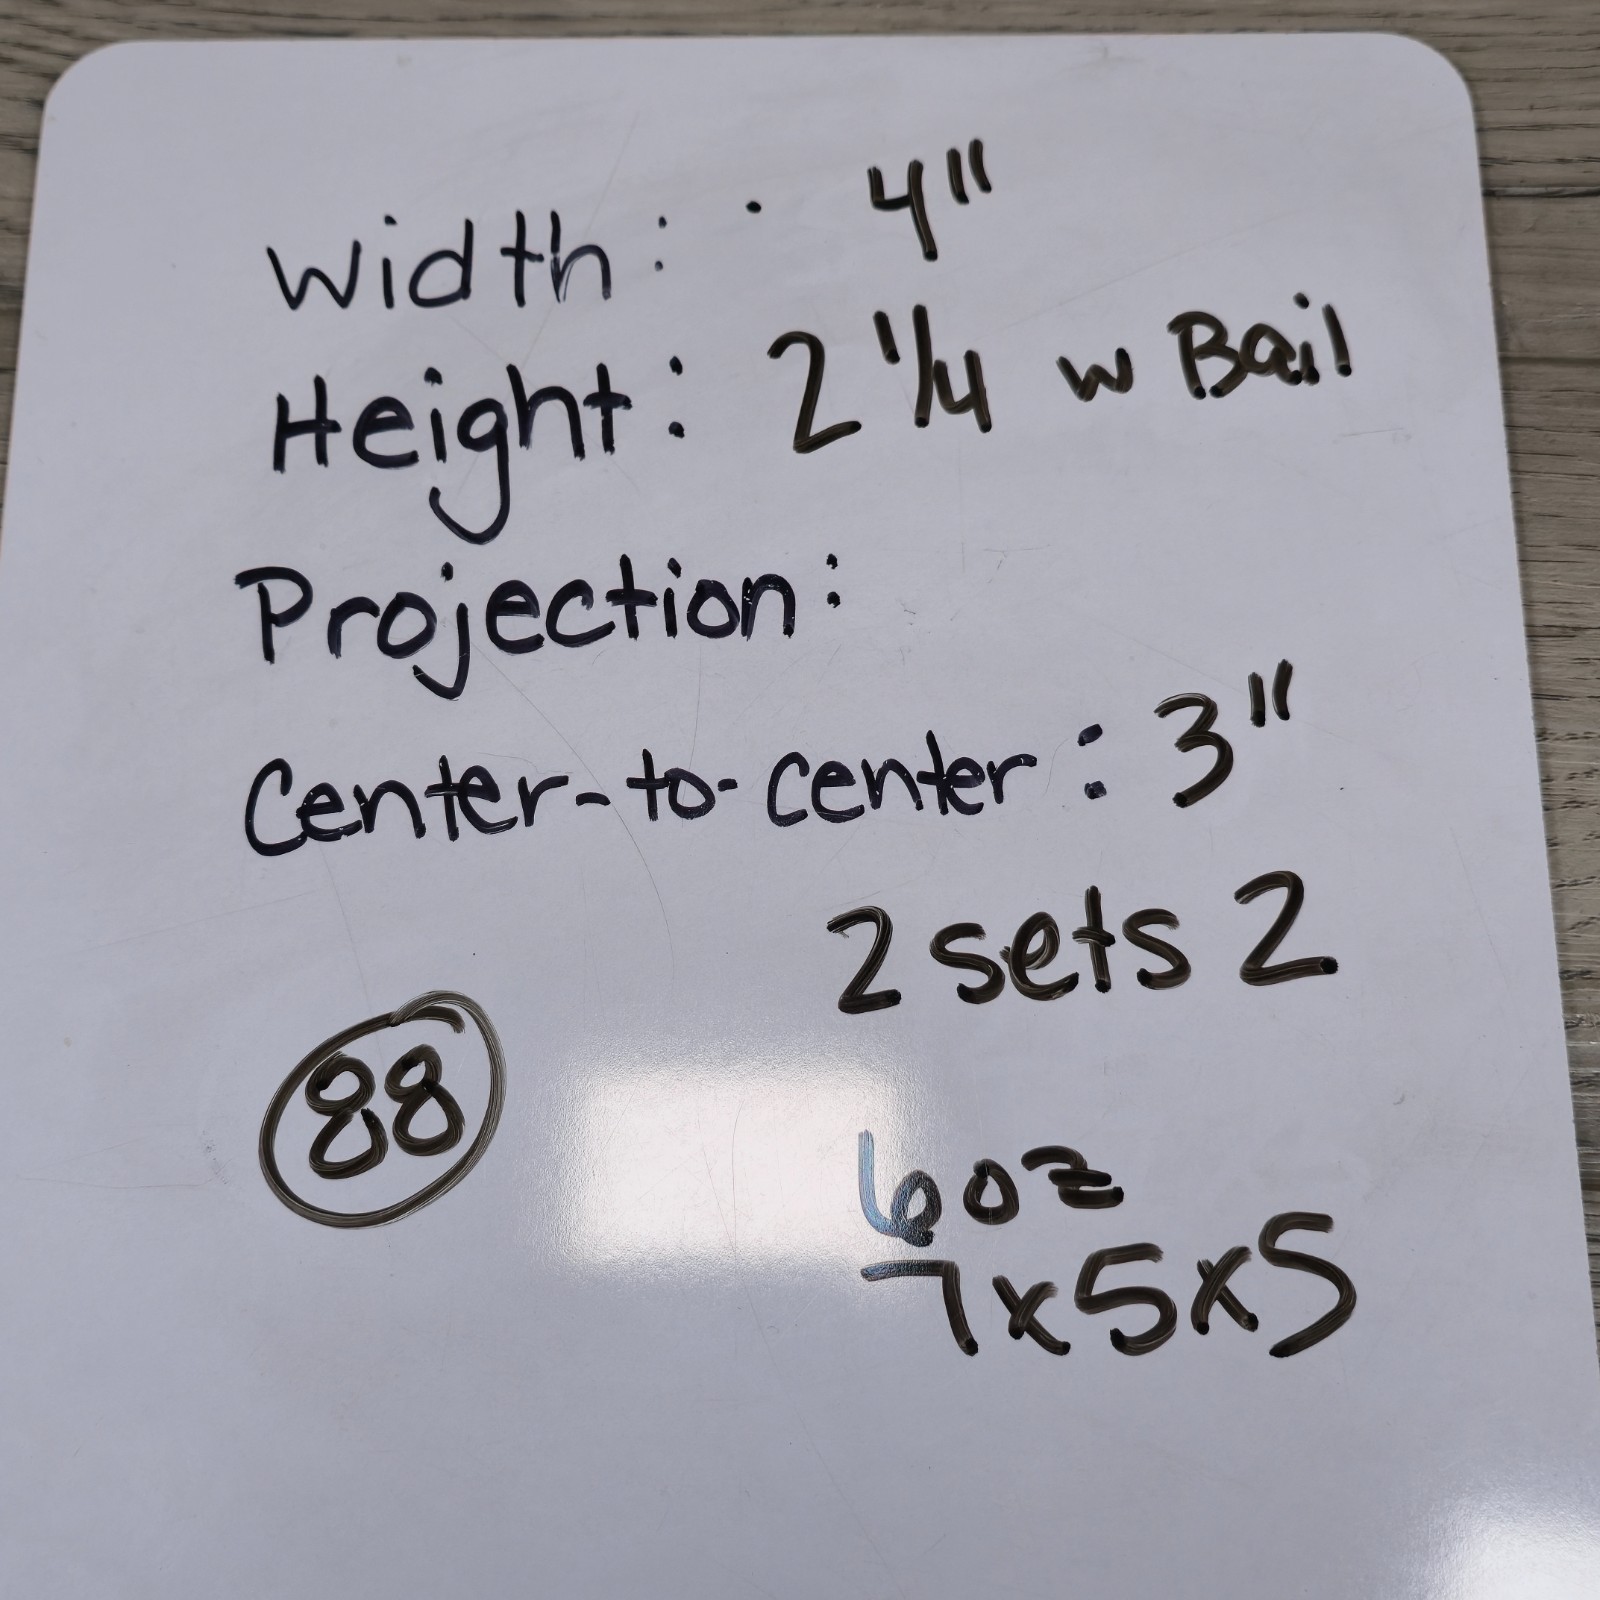 Width: · 4"
Height: 2 1/4 w Bail
Projection:
Center-to-center: 3"
2 sets 2
88
6 oz
7x5x5